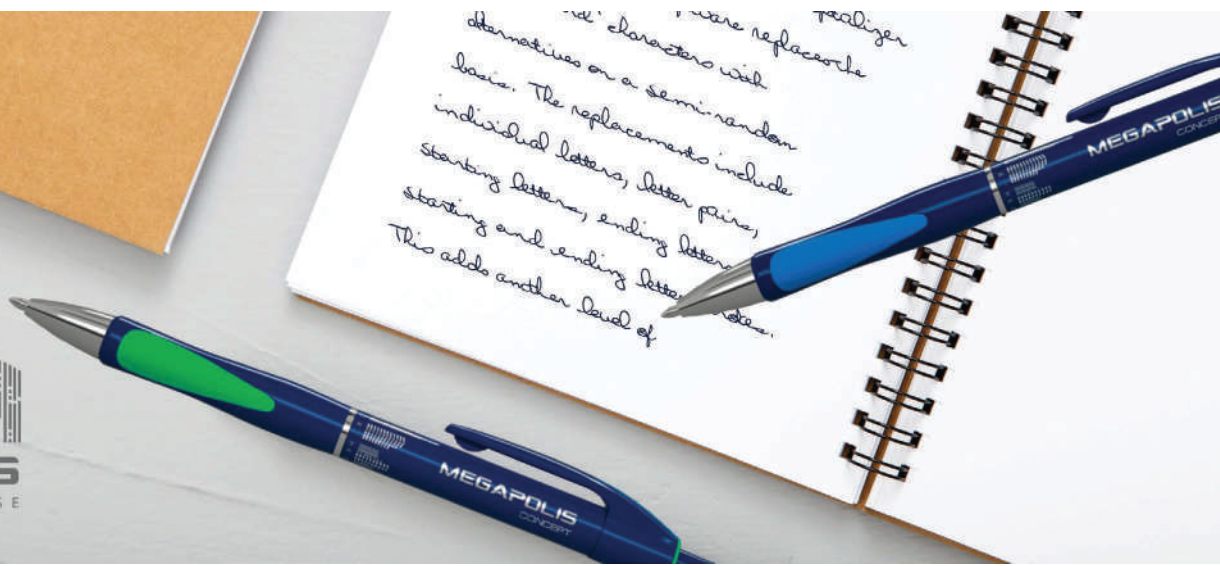 replaces the
characters with
alternatives on a semi-random
basis. The replacements include
individual letters, letter pairs,
starting letters, ending letters
starting and ending
This adds another level of
MEGAPOLIS
CONCEPT
MEGAPOLIS
CONCEPT